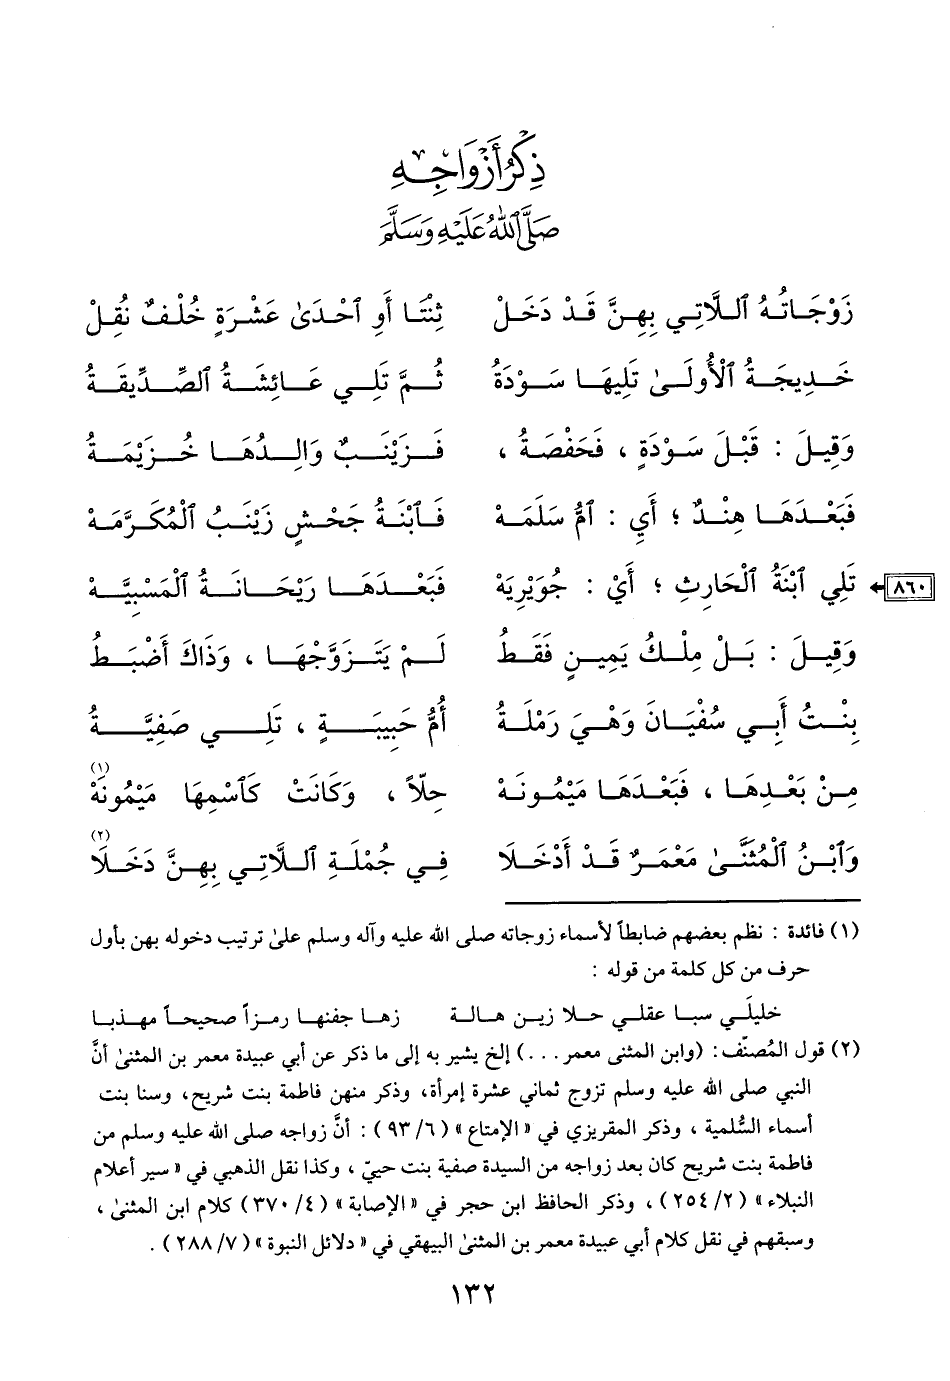 ذِكْرُ أَزْوَاجِهِ
صَلَّى ٱللهُ عَلَيْهِ وَسَلَّمَ
زَوْجَاتُهُ ٱللَّاتِي بِهِنَّ قَدْ دَخَلْ ثِنْتَا أَوِ ٱحْدَىٰ عَشْرَةٍ خُلْفٌ نُقِلْ
خَدِيجَةُ ٱلْأُولَىٰ تَلِيهَا سَوْدَةُ ثُمَّ تَلِي عَائِشَةُ ٱلصِّدِّيقَةُ
وَقِيلَ : قَبْلَ سَوْدَةٍ ، فَحَفْصَةُ ، فَزَيْنَبٌ وَالِدُهَا خُزَيْمَةُ
فَبَعْدَهَا هِنْدٌ ؛ أَيِ : ٱمُّ سَلَمَهْ فَٱبْنَةُ جَحْشٍ زَيْنَبُ ٱلْمُكَرَّمَهْ
٨٦٠ تَلِي ٱبْنَةُ ٱلْحَارِثِ ؛ أَيْ : جُوَيْرِيَهْ فَبَعْدَهَا رَيْحَانَةُ ٱلْمَسْبِيَّهْ
وَقِيلَ : بَلْ مِلْكُ يَمِينٍ فَقَطُ لَمْ يَتَزَوَّجْهَا ، وَذَاكَ أَضْبَطُ
بِنْتُ أَبِي سُفْيَانَ وَهْيَ رَمْلَةُ أُمُّ حَبِيبَةٍ ، تَلِي صَفِيَّةُ
مِنْ بَعْدِهَا ، فَبَعْدَهَا مَيْمُونَهْ حِلّاً ، وَكَانَتْ كَٱسْمِهَا مَيْمُونَهْ (١)
وَٱبْنُ ٱلْمُثَنَّىٰ مَعْمَرٌ قَدْ أَدْخَلَا فِي جُمْلَةِ ٱللَّاتِي بِهِنَّ دَخَلَا (٢)
(١) فائدة : نظم بعضهم ضابطاً لأسماء زوجاته صلى الله عليه وآله وسلم علىٰ ترتيب دخوله بهن بأول
حرف من كل كلمة من قوله :
خليلَي سبا عقلي حلا زين هالة زها جفنها رمزاً صحيحاً مهذبا
(٢) قول المُصنّف : (وابن المثنى معمر . . .) إلخ يشير به إلى ما ذكر عن أبي عبيدة معمر بن المثنىٰ أنَّ
النبي صلى الله عليه وسلم تزوج ثماني عشرة إمرأة، وذكر منهن فاطمة بنت شريح، وسنا بنت
أسماء السُّلمية ، وذكر المقريزي في « الإمتاع » ( ٩٣/٦ ) : أنَّ زواجه صلى الله عليه وسلم من
فاطمة بنت شريح كان بعد زواجه من السيدة صفية بنت حييّ ، وكذا نقل الذهبي في « سير أعلام
النبلاء » ( ٢٥٤/٢ ) ، وذكر الحافظ ابن حجر في « الإصابة » ( ٣٧٠/٤ ) كلام ابن المثنىٰ ،
وسبقهم في نقل كلام أبي عبيدة معمر بن المثنىٰ البيهقي في « دلائل النبوة » ( ٢٨٨/٧ ) .
١٣٢